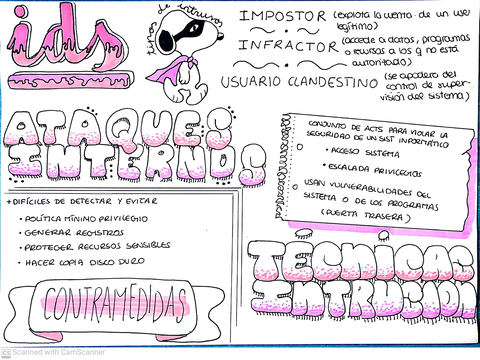 ids
tipos de intrusos
IMPOSTOR (explota la cuenta de un user
legítimo)
INFRACTOR (accede a datos, programas
o recursos a los q no está
autorizado)
USUARIO CLANDESTINO (se apodera del
control de super-
visión del sistema)
ATAQUES
INTERNOS
+ DIFÍCILES DE DETECTAR Y EVITAR
• POLÍTICA MÍNINO PRIVILEGIO
• GENERAR REGISTROS
• PROTEGER RECURSOS SENSIBLES
• HACER COPIA DISCO DURO
CONTRAMEDIDAS
CONJUNTO DE ACTS PARA VIOLAR LA
SEGURIDAD DE UN SIST INFORMÁTICO
• ACCESO SISTEMA
• ESCALADA PRIVILEGIOS
USAN VULNERABILIDADES DEL
SISTEMA O DE LOS PROGRAMAS
(PUERTA TRASERA)
TÉCNICAS
INTRUSIÓN
CS Scanned with CamScanner